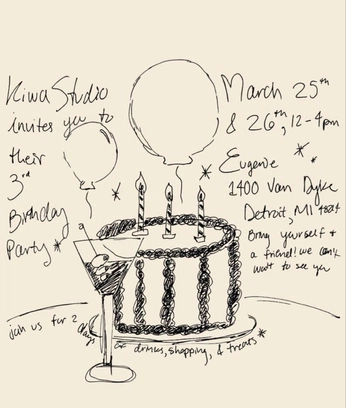 Kiwa Studio
invites you to
their
3rd
Birthday
Party*
March 25th
& 26th, 12-4pm
Eugenie
1400 Van Dyke
Detroit, MI
Bring yourself +
a friend! we can't
wait to see ya
join us for 2
days of drinks, shopping, & treats*